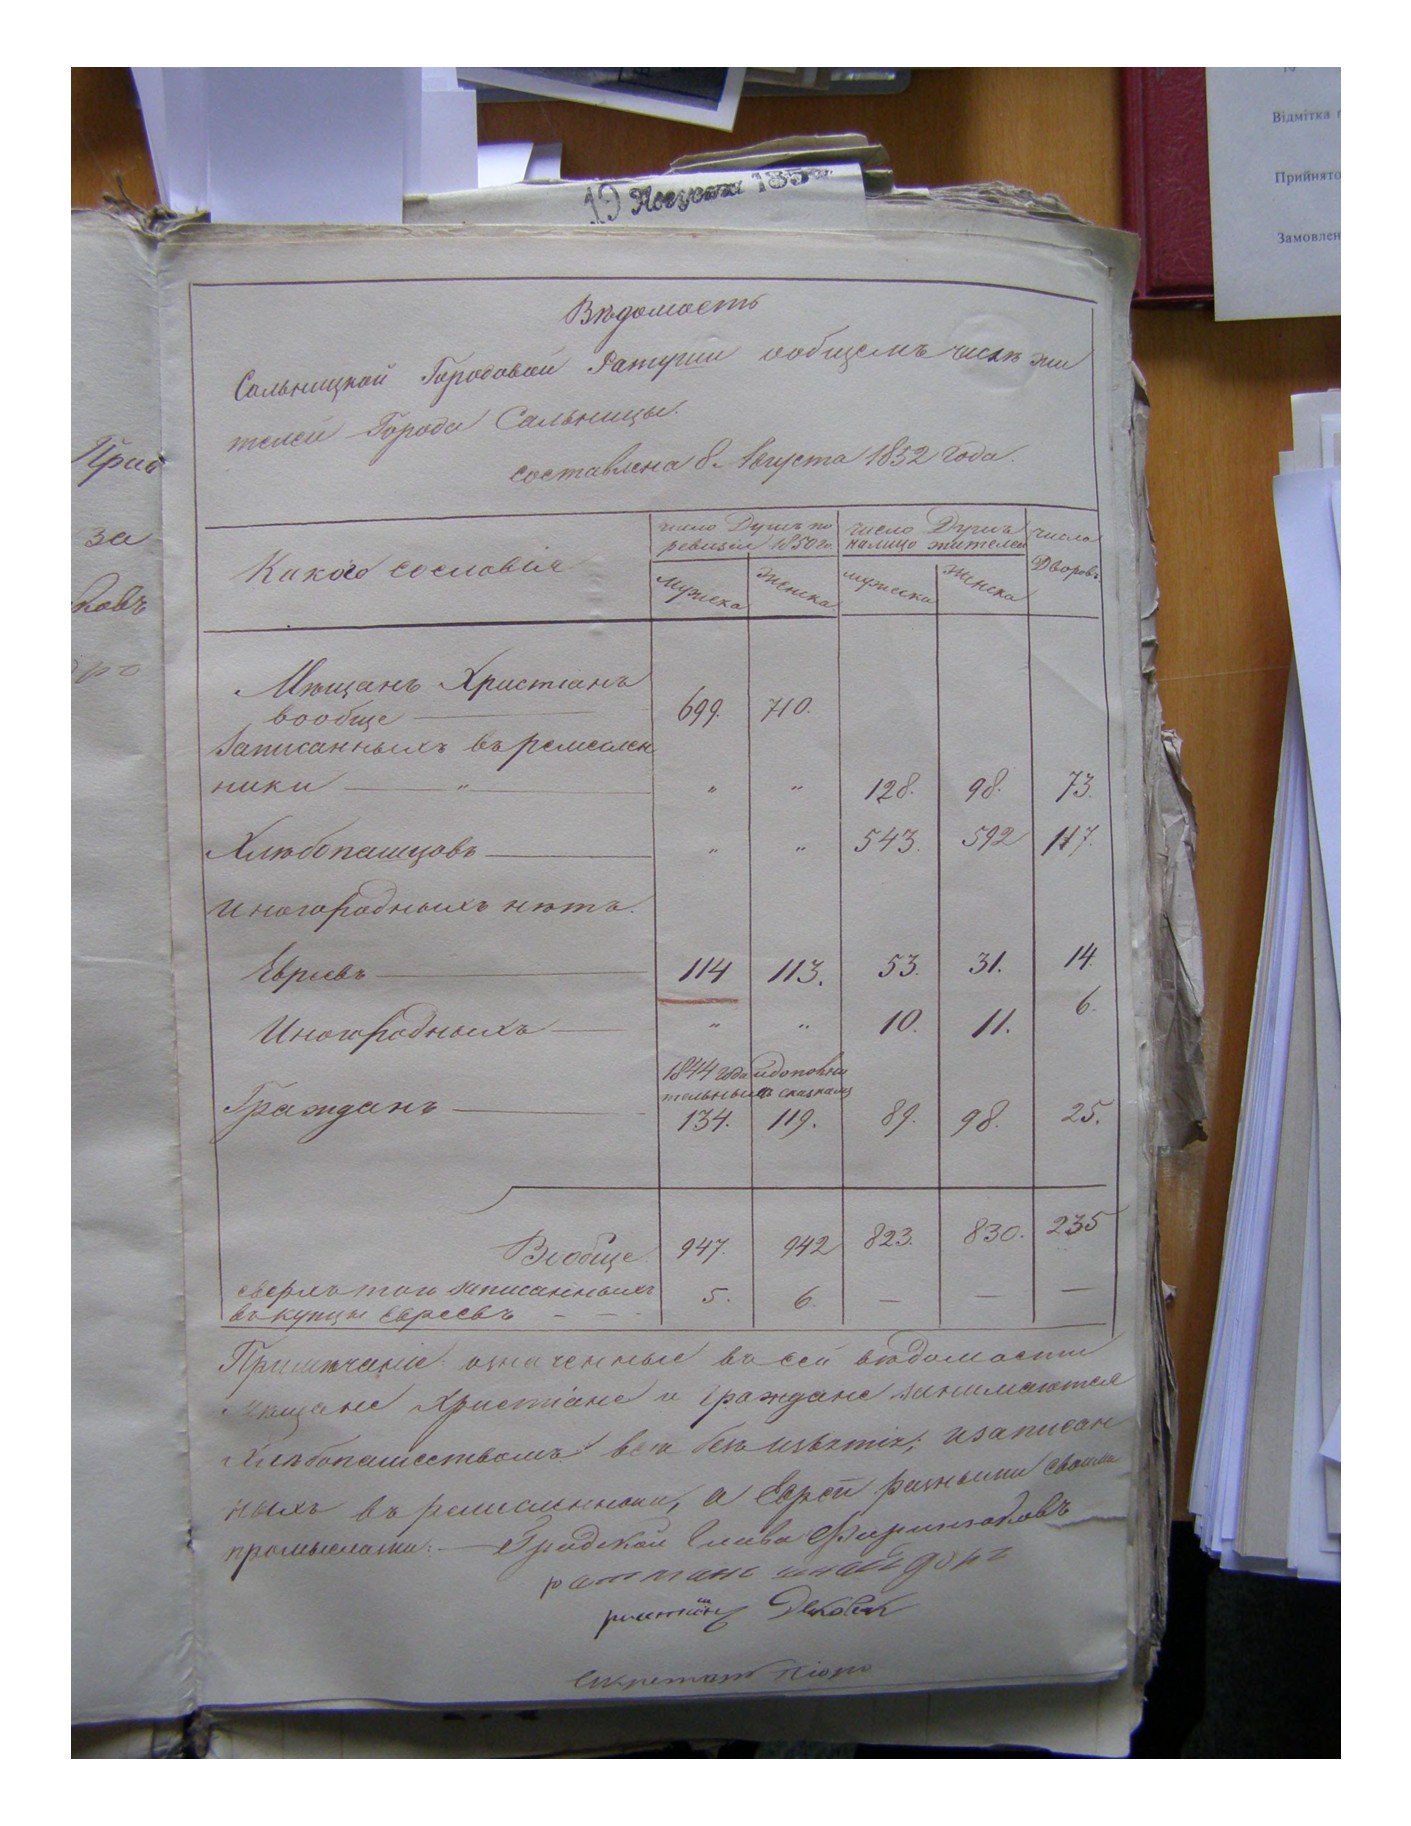 19 Августа 185
Відмітка
Прийнято
Замовлен
за
Вѣдомость
Сальницкой Городовой Ратуши о общемъ числѣ жи
телей Города Сальницы.
составлена 8. Августа 1852 года.
Какого сословія
число Душъ по ревизіи 1850 г.
число Душъ налицо жителей
число Дворовъ
мужеска женска мужеска женска
Мѣщанъ Христіанъ
вообще 699. 710.
Записанныхъ въ ремеслен
ники " " " 128. 98. 73.
Хлѣбопашцовъ " " 543. 592 117.
Иногородныхъ нѣтъ.
Евреевъ 114 113. 53. 31. 14.
Иногородныхъ " " 10. 11. 6.
1844 года и дополни
тельнымъ сказкамъ
Гражданъ 134. 119. 89. 98. 25.
Вообще 947. 942 823. 830. 235
сверхъ того записанныхъ
въ купцы Евреевъ 5. 6. — — —
Примѣчаніе: означенные въ сей вѣдомости
Мѣщане Христіане и Граждане занимаются
Хлѣбопашествомъ всѣ безъ изъятія, и записан
ныхъ въ ремесленники, а Евреи разными своими
промыслами. — Градской Глава
ратманъ
ратманъ
Секретарь